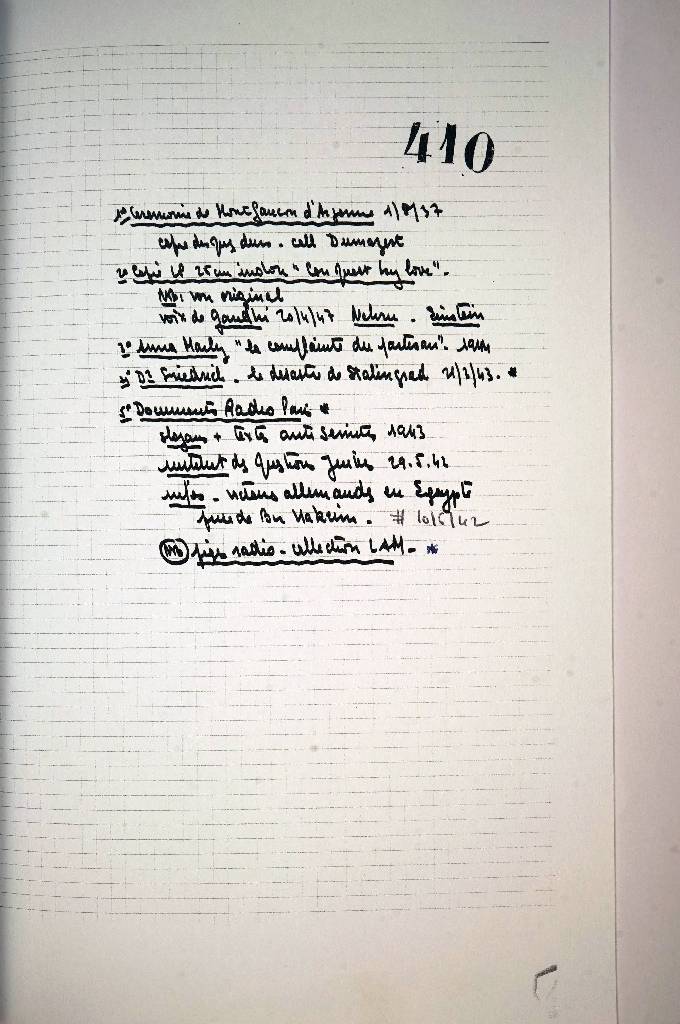 410
1° Ceremonie de Montfaucon d'Argonne 1/8/37
copie disques durs. coll Dumazert
2° Copie LP 25 cm indou "Conquest by love".
NB: von original
voix de Gandhi 20/4/47 Nehru. Einstein
3° Anna Marly "la complainte du partisan". 1944
4° Dr Friedrich. le desastre de Stalingrad 21/2/43. *
5° Documents Radio Paris *
slogans + texte anti Semites 1943
institut des questions Juives 29.5.42
infos. victoires allemandes en Egypte
prise de Bir Hakeim. # 10/6/42
(NB) piges radio. collection LAM. *